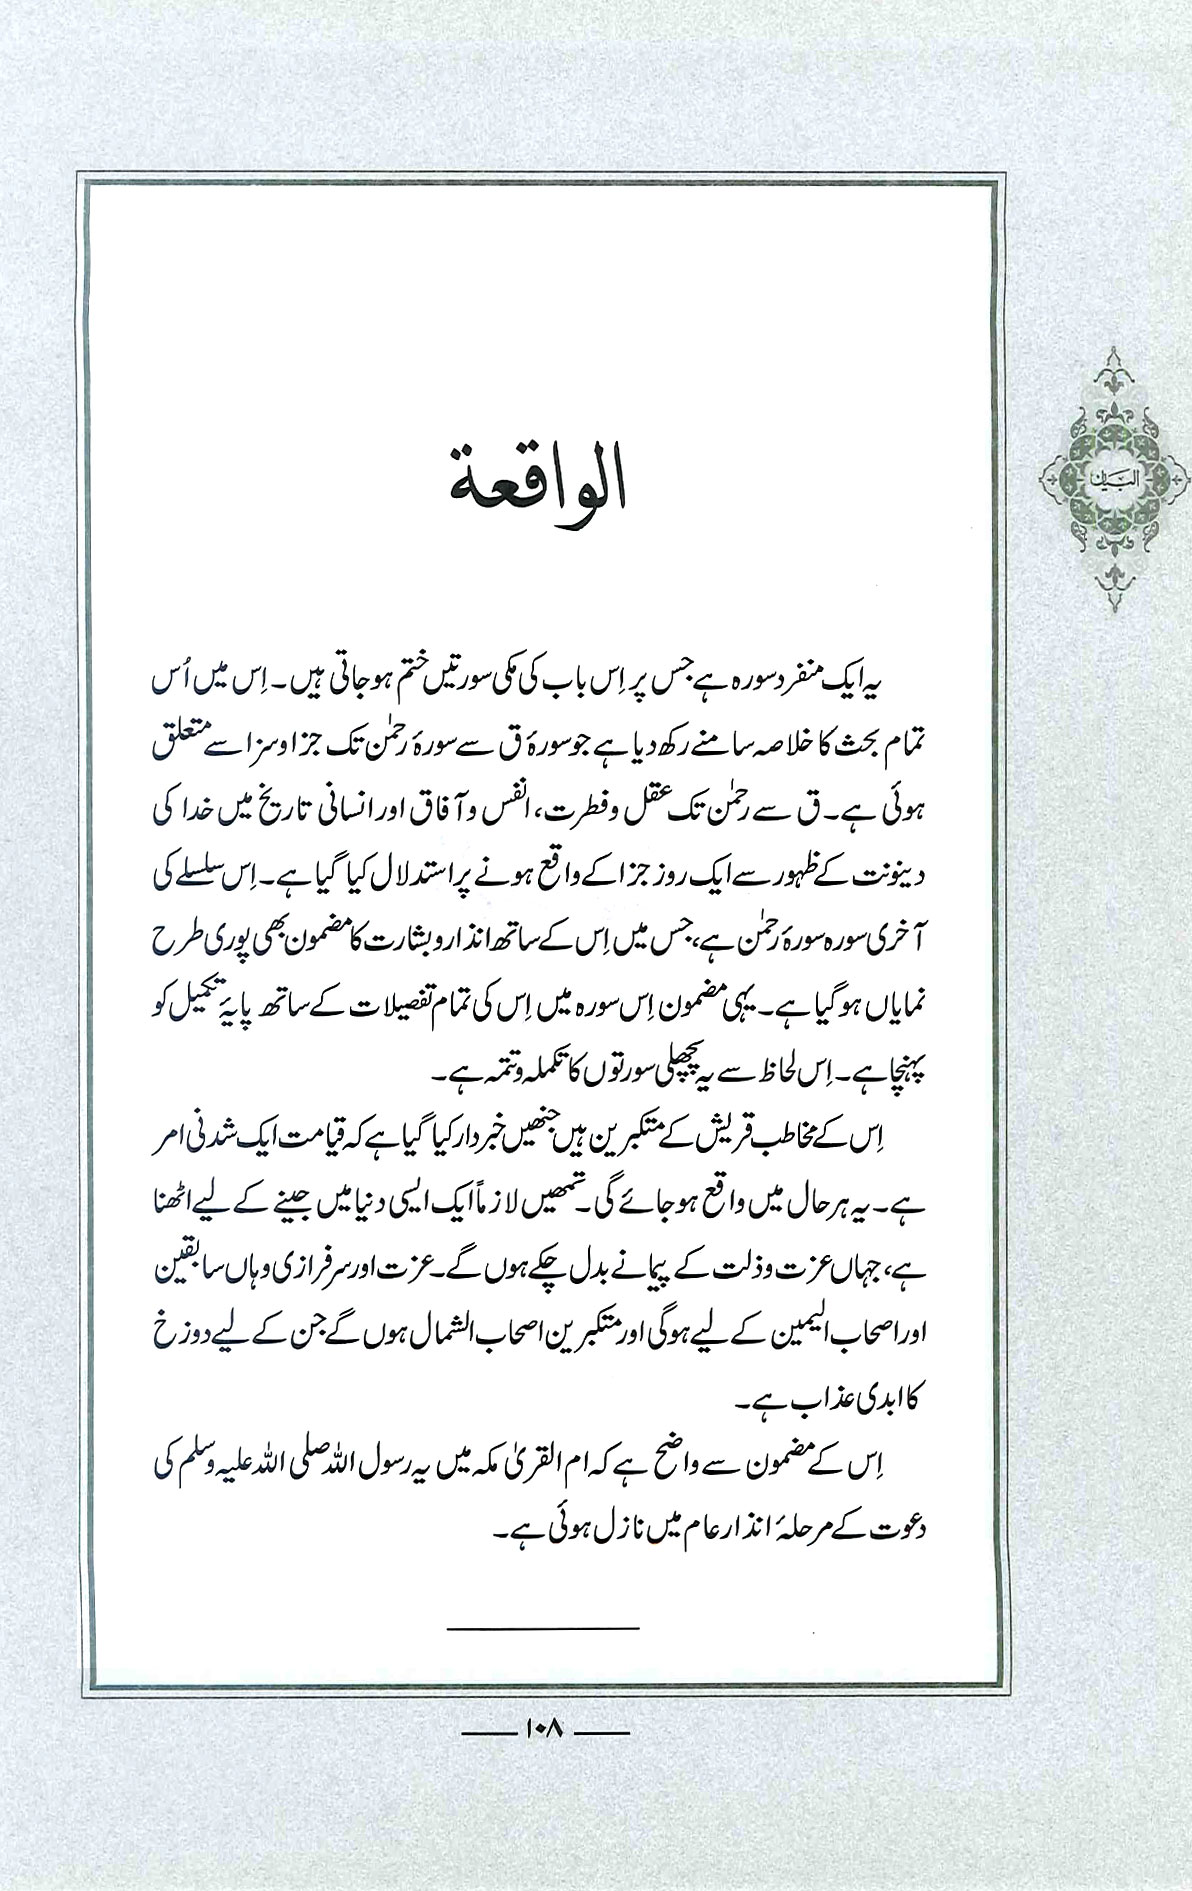 الواقعة
البیان
یہ ایک منفرد سورہ ہے جس پر اِس باب کی مکی سورتیں ختم ہو جاتی ہیں۔ اِس میں اُس
تمام بحث کا خلاصہ سامنے رکھ دیا ہے جو سورۂ ق سے سورۂ رحمٰن تک جزا و سزا سے متعلق
ہوئی ہے۔ ق سے رحمٰن تک عقل و فطرت، انفس و آفاق اور انسانی تاریخ میں خدا کی
دینونت کے ظہور سے ایک روز جزا کے واقع ہونے پر استدلال کیا گیا ہے۔ اِس سلسلے کی
آخری سورہ سورۂ رحمٰن ہے، جس میں اِس کے ساتھ انذار و بشارت کا مضمون بھی پوری طرح
نمایاں ہو گیا ہے۔ یہی مضمون اِس سورہ میں اِس کی تمام تفصیلات کے ساتھ پایۂ تکمیل کو
پہنچا ہے۔ اِس لحاظ سے یہ پچھلی سورتوں کا تکملہ و تتمہ ہے۔
اِس کے مخاطب قریش کے متکبرین ہیں جنھیں خبردار کیا گیا ہے کہ قیامت ایک شدنی امر
ہے۔ یہ ہر حال میں واقع ہو جائے گی۔ تمھیں لازماً ایک ایسی دنیا میں جینے کے لیے اٹھنا
ہے، جہاں عزت و ذلت کے پیمانے بدل چکے ہوں گے۔ عزت اور سرفرازی وہاں سابقین
اور اصحاب الیمین کے لیے ہوگی اور متکبرین اصحاب الشمال ہوں گے جن کے لیے دوزخ
کا ابدی عذاب ہے۔
اِس کے مضمون سے واضح ہے کہ ام القریٰ مکہ میں یہ رسول اللہ صلی اللہ علیہ وسلم کی
دعوت کے مرحلۂ انذار عام میں نازل ہوئی ہے۔
۱۰۸